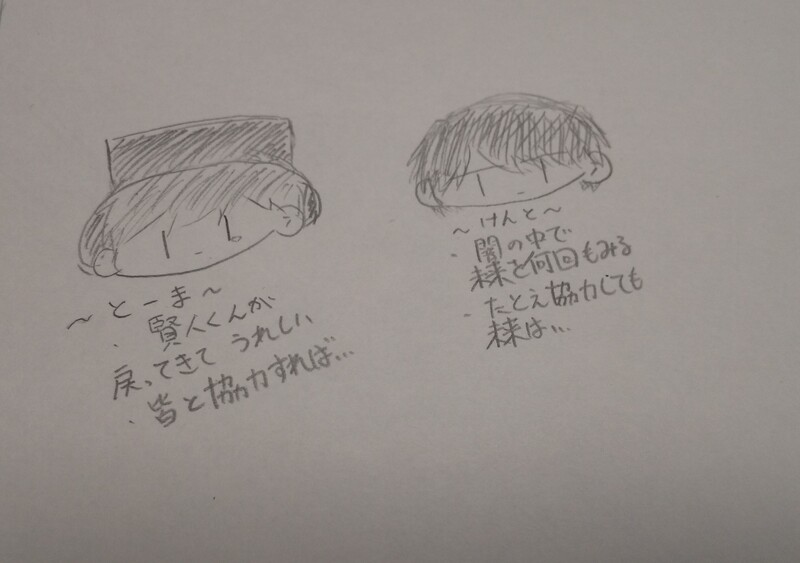 ～とーま～
・賢人くんが
戻ってきてうれしい
・皆と協力すれば...
～けんと～
・闇の中で
未来を何回もみる
・たとえ協力しても
未来は...